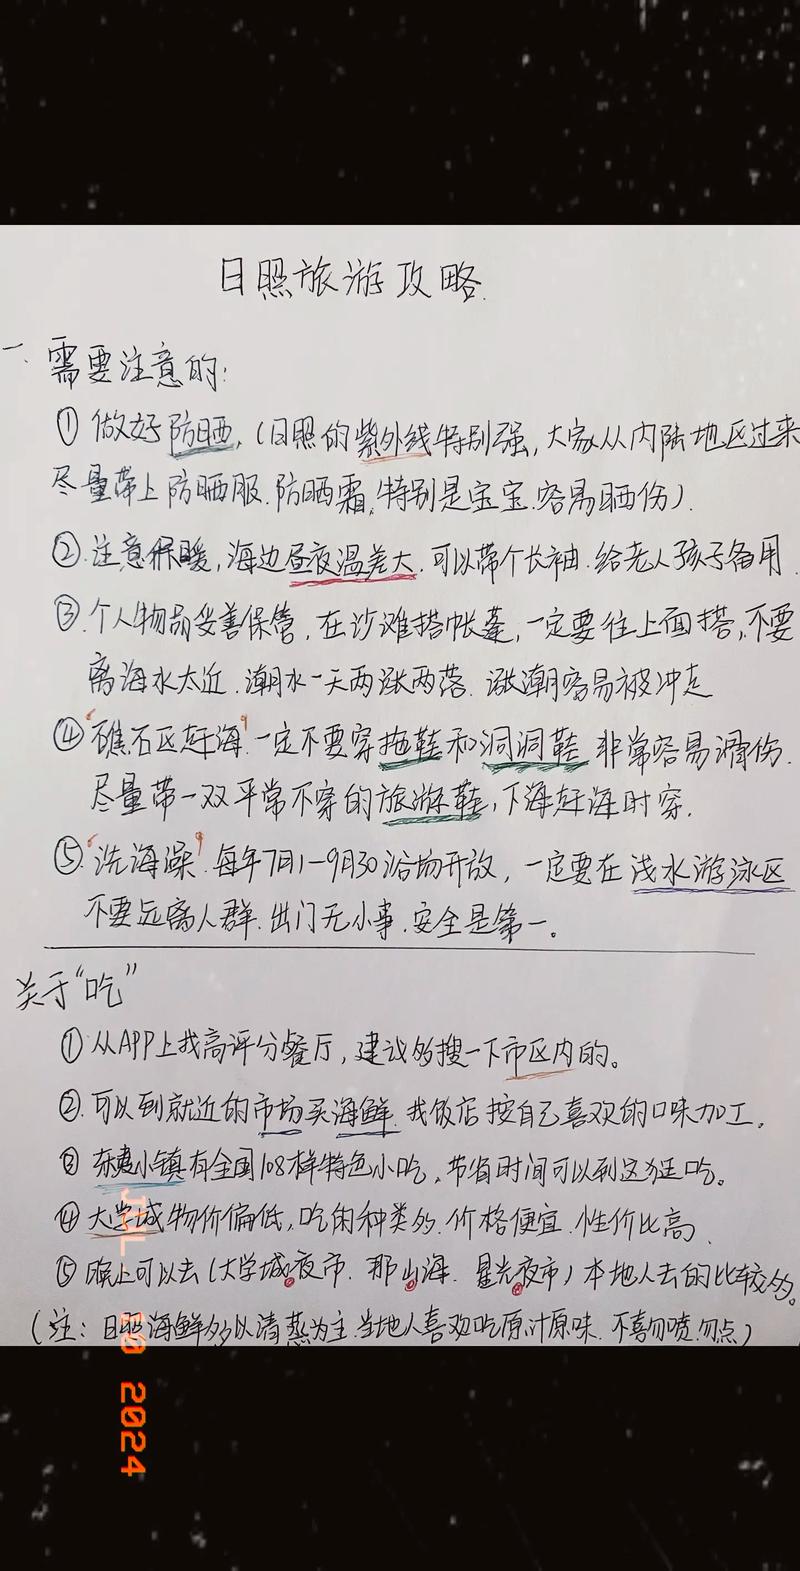 日照旅游攻略.
一、需要注意的:
① 做好防晒,(日照的紫外线特别强,大家从内陆地区过来
尽量带上防晒服.防晒霜,特别是宝宝.容易晒伤).
②.注意保暖,海边昼夜温差大.可以带个长袖.给老人孩子备用.
③.个人物品妥善保管,在沙滩搭帐蓬,一定要往上面搭,不要
离海水太近.潮水一天两涨两落.涨潮容易被冲走
④“礁石区赶海”一定不要穿拖鞋和洞洞鞋 非常容易滑伤.
尽量带一双平常不穿的旅游鞋,下海赶海时穿.
⑤“洗海澡”.每年7月1-9月30浴场开放,一定要在浅水游泳区
不要远离人群.出门无小事.安全是第一。
关于“吃”
①从APP上找高评分餐厅,建议多搜一下市区内的。
②.可以到就近的市场买海鲜.找饭店按自己喜欢的口味加工。
③ 东夷小镇有全国108样特色小吃,节省时间可以到这逛吃。
④大学城物价偏低,吃的种类多.价格便宜.性价比高.
⑤晚上可以去(大学城夜市.那山海.星光夜市)本地人去的比较多。
(注:日照海鲜多以清蒸为主.当地人喜欢吃原汁原味.不喜勿喷.勿点)
2024